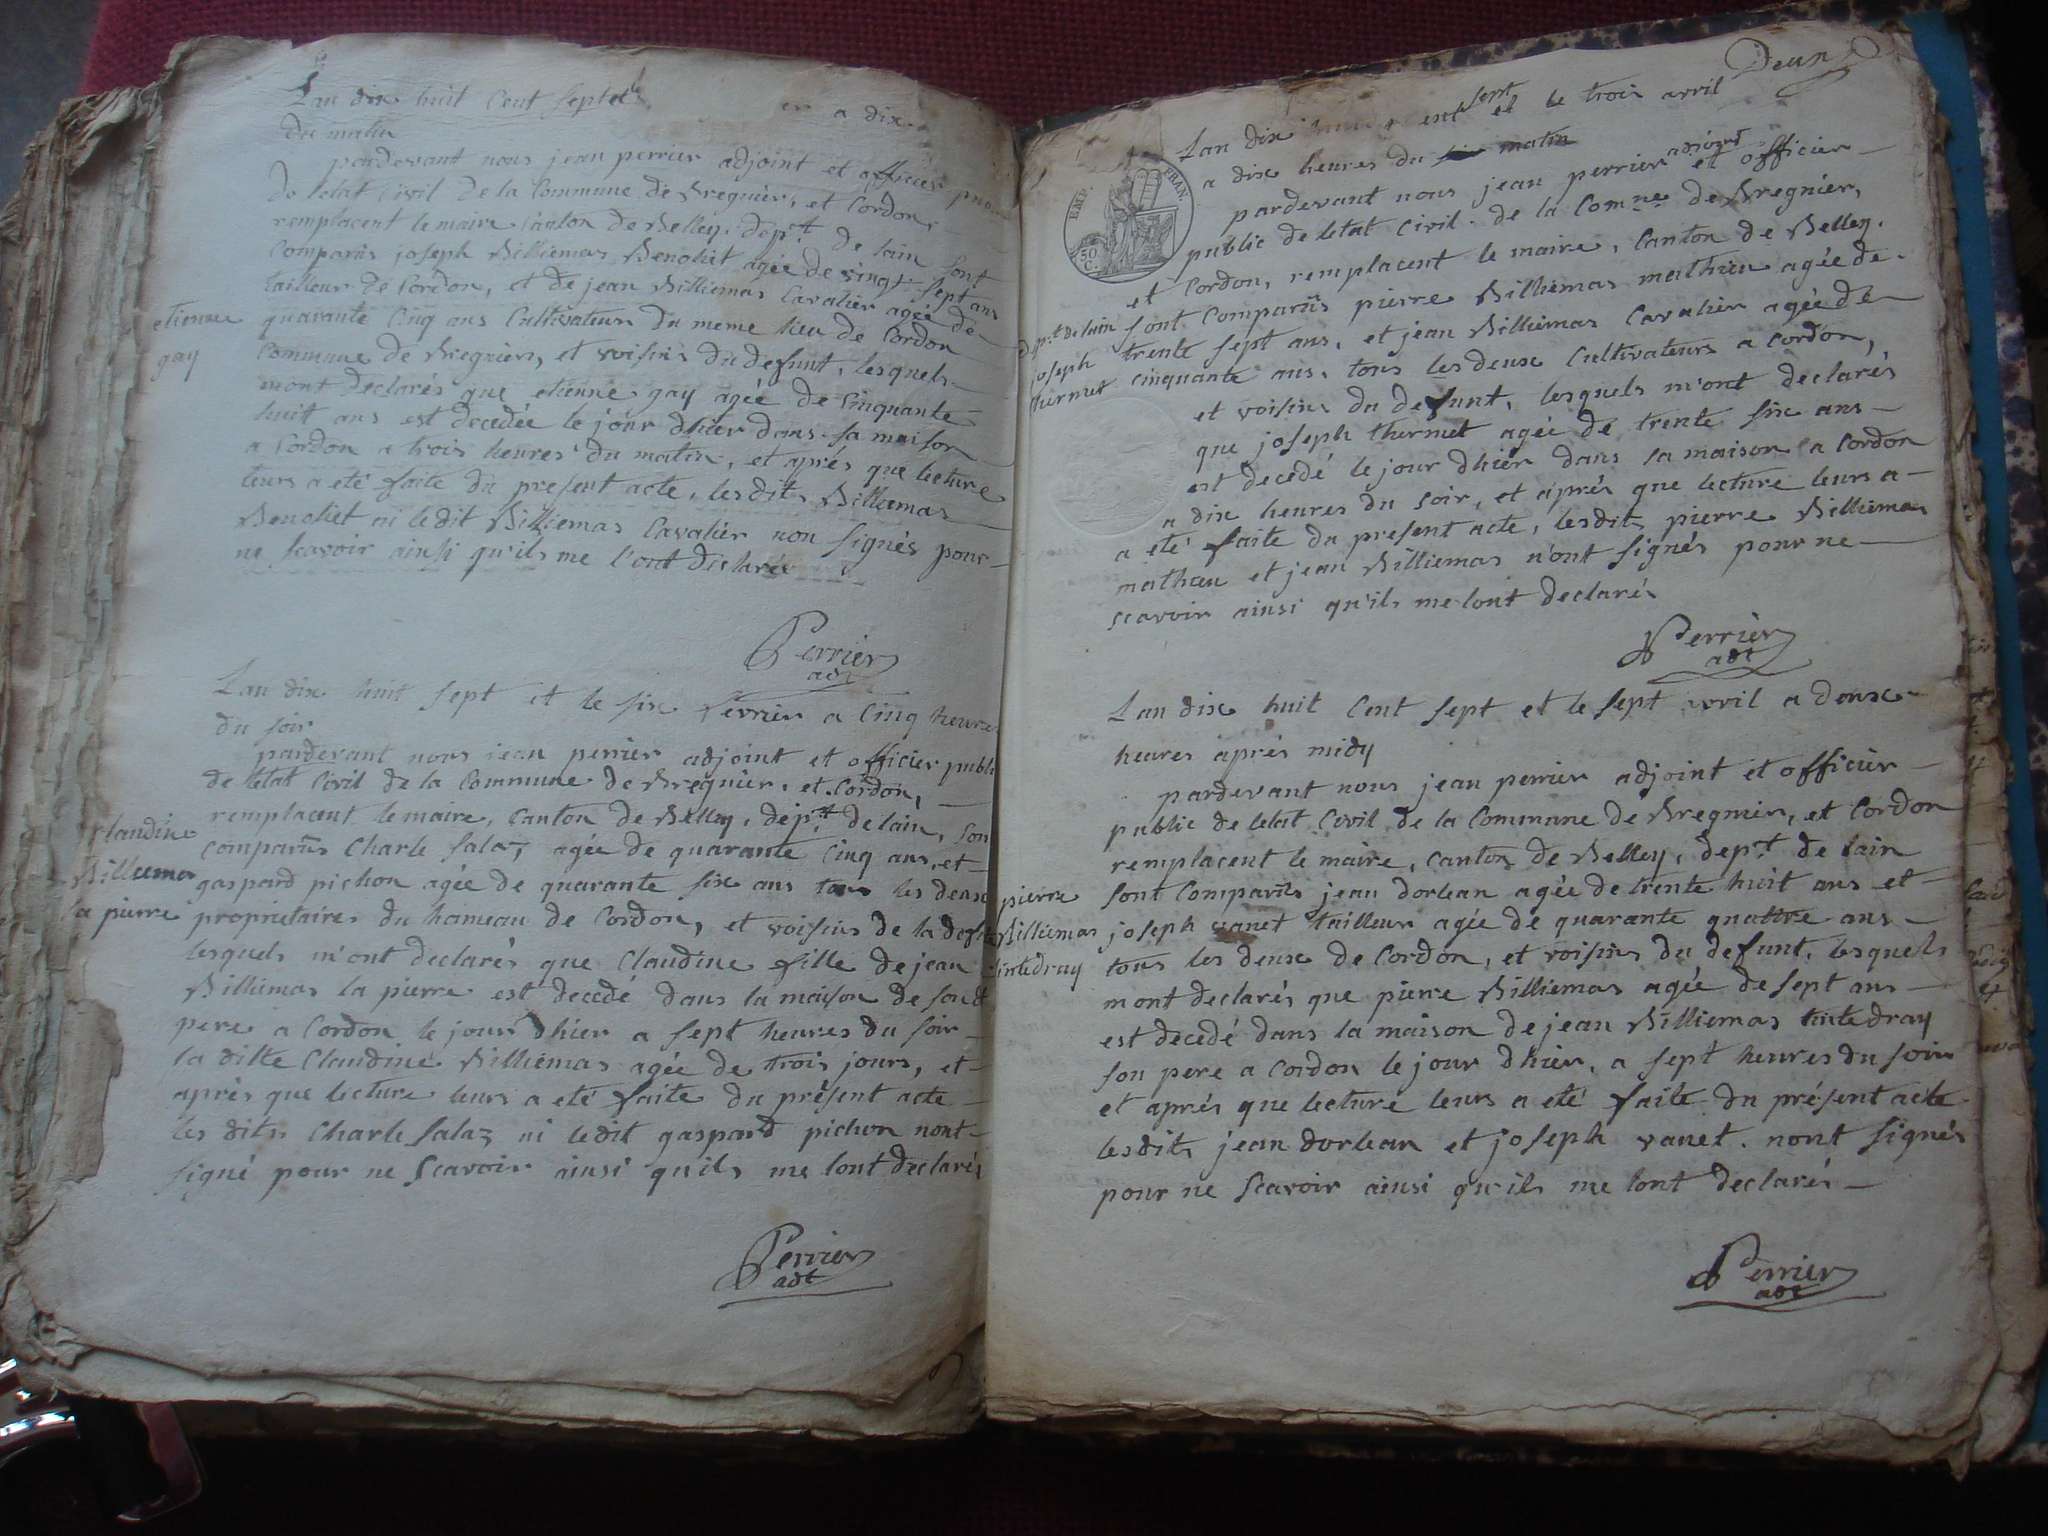 Lan dix huit Cent Sept et le
en a dix
du matin
pardevant nous jean perrier adjoint et officier
de letat Civil de la Commune de Bregnier, et Cordon,
remplacent le maire Canton de Belley, dept. de lain sont
Comparus joseph Billiemas Benoliet agée de vingt sept ans
tailleur de Cordon, et de jean Billiemas Cavalier agée de
quarante Cinq ans Cultivateur du meme lieu de Cordon
Commune de Bregnier, et voisins du defunt, lesquels
mont declarés que etienne gay agée de Cinquante
huit ans est decedée le jour dhier dans sa maison
a Cordon a trois heures du matin, et aprés que lecture
leurs a eté faite du present acte, lesdits Billiemas
Benoliet ni ledit Billiemas Cavalier non signés pour
ne scavoir ainsi qu'ils me l'ont declarés
etienne
gay
Perrier
adt
Lan dix huit sept et le six fevrier a Cinq heures
du soir
pardevant nous jean perrier adjoint et officier publi
de letat Civil de la Commune de Bregnier, et Cordon,
remplacent le maire, Canton de Belley, dept. de lain, son
comparus Charle Salaz, agée de quarante Cinq ans, et
gaspard pichon agée de quarante six ans tous les deux
proprietaires du hameau de Cordon, et voisins de la defun
lesquels m'ont declarés que Claudine fille de jean
Billiemas la pierre est decedé dans la maison de sondt
pere a Cordon le jour dhier a sept heures du soir
la ditte Claudine Billiemas agée de trois jours, et
aprés que lecture leurs a eté faite du présent acte
les dits Charle Salaz ni ledit gaspard pichon nont
signé pour ne scavoir ainsi qu'ils me lont declarés
Claudine
Billiemas
la pierre
Perrier
adt
Deux
Lan dix ent sept et le trois avril
a dix heures du matin
pardevant nous jean perrier adjoint et officier
public de letat Civil de la Comne de Bregnier,
et Cordon, remplacent le maire, Canton de Belley.
dept. de lain sont Comparûs pierre Billiemas mathieu agée de
trente sept ans, et jean Billiemas Cavalier agée de
cinquante ans, tous les deux Cultivateurs a Cordon,
et voisins du defunt, lesquels m'ont declarés
que joseph thernet agée de trente six ans
est decedé le jour dhier dans sa maison a Cordon
a dix heures du soir, et aprés que lecture leurs a
a eté faite du present acte, lesdits pierre Billiemas
mathieu et jean Billiemas n'ont signés pour ne
scavoir ainsi qu'ils me lont declarés
joseph
thernet
EMP. FRAN.
50
C.
Perrier
adt
Lan dix huit Cent sept et le sept avril a deux
heures aprés midy
pardevant nous jean perrier adjoint et officier
public de letat Civil de la Commune de Bregnier, et Cordon
remplacent le maire, canton de Belley, dept. de lain
sont Comparûs jean dorlean agée de trente huit ans et
joseph vanet tailleur agée de quarante quattre ans
tous les deux de Cordon, et voisins du defunt, lesquels
mont declarés que pierre Billiemas agée de sept ans
est decedé dans la maison de jean Billiemas tintedray
son pere a Cordon le jour dhier, a sept heures du soir
et aprés que lecture leurs a eté faite du présent acte
lesdits jean dorlean et joseph vanet. nont signés
pour ne scavoir ainsi qu'ils me lont declarés
pierre
Billiemas
tintedray
Perrier
adt